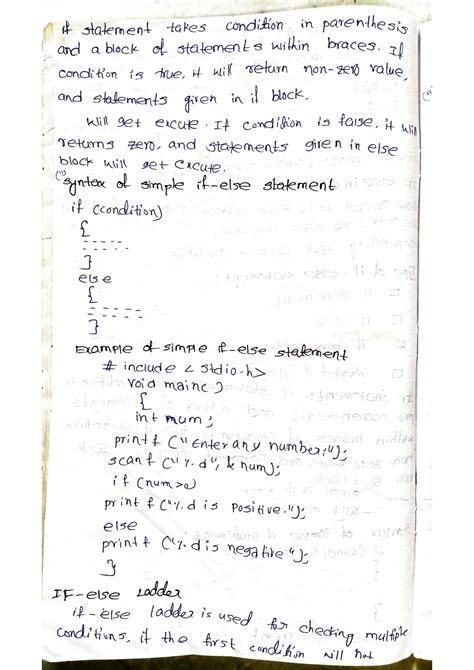 if statement takes condition in parenthesis
and a block of statements within braces. If
condition is true, it will return non-zero value,
and statements given in if block.
will get excute. If condition is false, it will
returns zero, and statements given in else
block will get excute.
syntax of simple if-else statement
if (condition)
{
- - - - -
}
else
{
- - - -
- - - -
}
Example of simple if-else statement
# include < stdio.h>
void main()
{
int num;
printf ("Enter any number:");
scanf ("%d", & num);
if (num>0)
printf ("%d is positive.");
else
printf ("%d is negative");
}
IF-else Ladder
if-else ladder is used for checking multiple
conditions, if the first condition will not